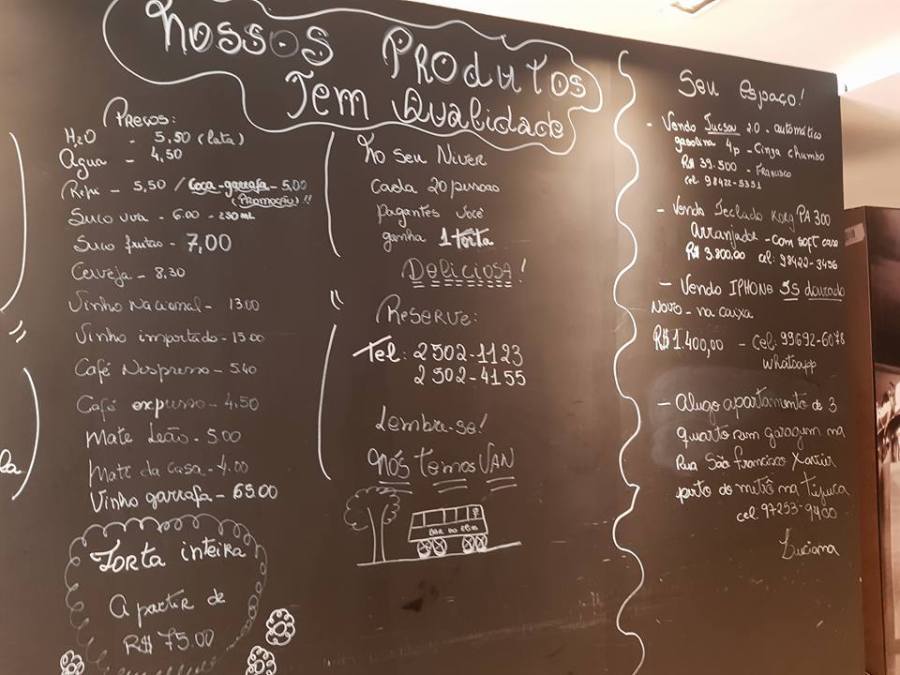 Nossos Produtos
Tem Qualidade
Preços:
H2O - 5,50 (lata)
Água - 4,50
Refri - 5,50 / Coca-garrafa - 5,00
(PROMOÇÃO)!!
Suco uva - 6.00 - 290 ml
Suco frutas - 7,00
Cerveja - 8,30
Vinho Nacional - 13.00
Vinho importado - 15.00
Café Nespresso - 5.40
Café expresso - 4.50
Mate Leão - 5.00
Mate da casa - 4.00
Vinho garrafa - 65.00
Torta inteira
A partir de
R$ 75.00
No seu Niver
cada 20 pessoas
pagantes você
ganha 1 torta
DELICIOSA!
Reserve:
Tel: 2502-1123
2502-4155
Lembre-se!
Nós temos VAN
Seu espaço!
- Vendo Tucson 2.0 - automático
gasolina 4p - Cinza chumbo
R$ 39.500 - Francisco
cel. 98422-5351
- Vendo Teclado Korg PA 300
Arranjador - com soft case
R$ 3.800,00 cel: 98422-3456
- Vendo IPHONE 5S dourado
Novo - na caixa
R$ 1.400,00 - cel: 99692-6078
whatsapp
- Alugo apartamento de 3
quarto sem garagem na
Rua São Francisco Xavier
perto do metrô na Tijuca
cel: 97253-9400
Luciana